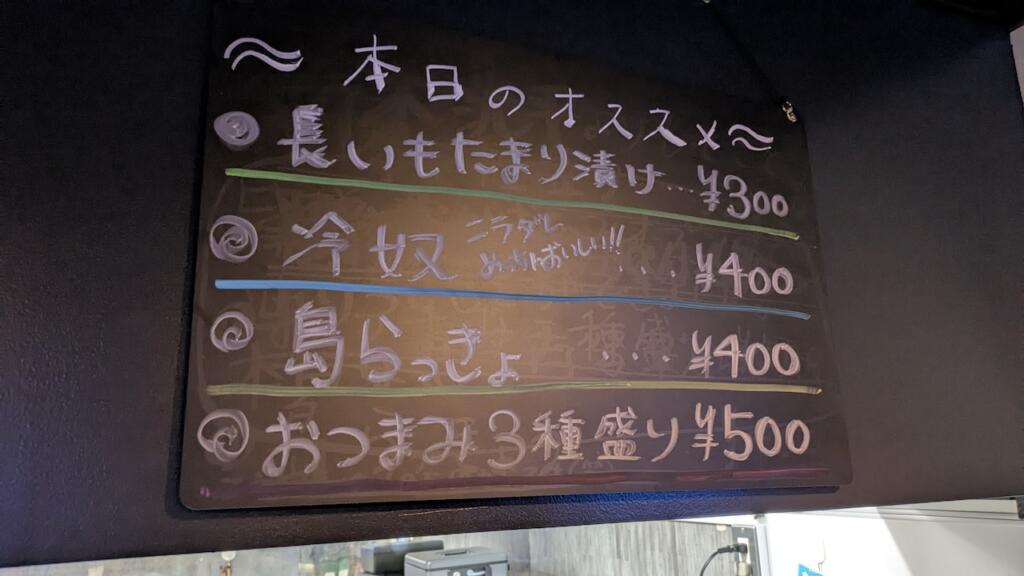 〜本日のオススメ〜
長いもたまり漬け...¥300
冷奴 ニラダレ
....¥400
島らっきょ ....¥400
おつまみ3種盛り ¥500